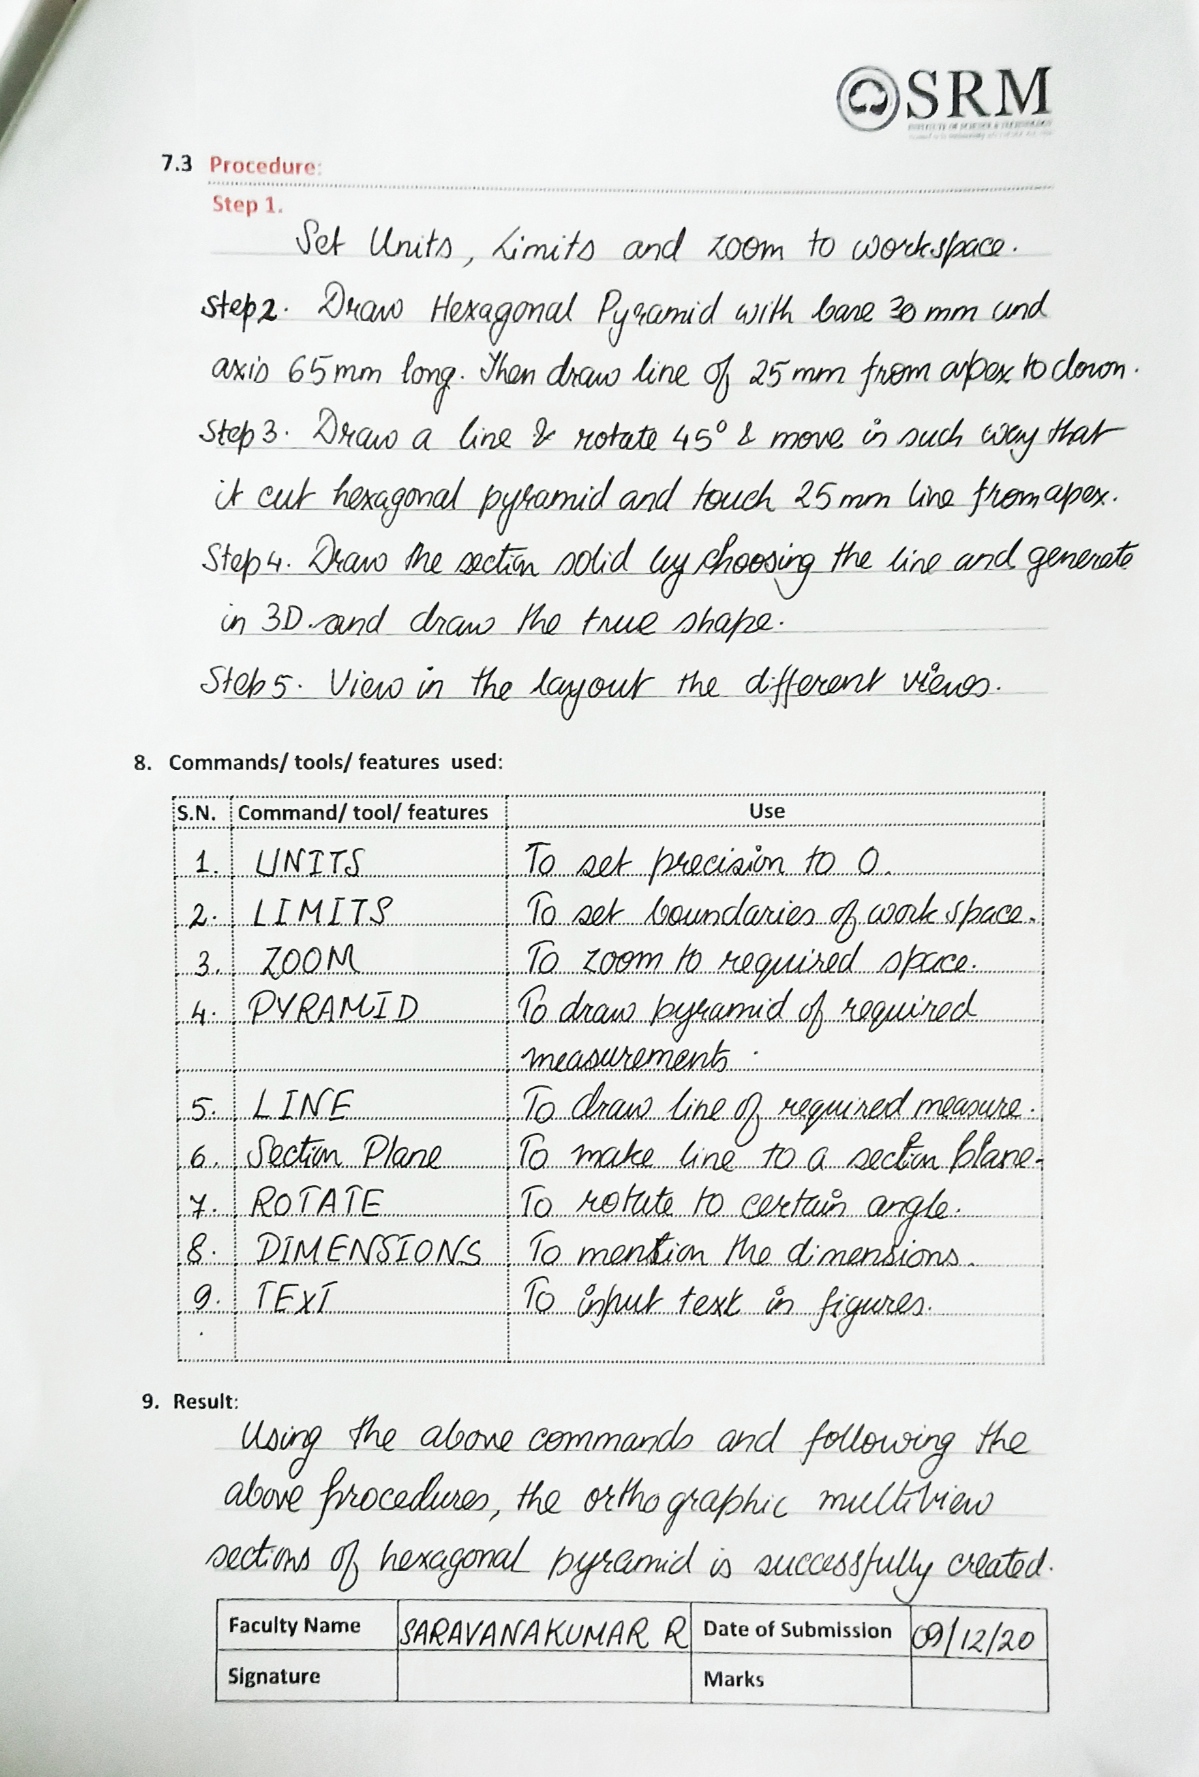 SRM
INSTITUTE OF SCIENCE & TECHNOLOGY
7.3 Procedure:
Step 1.
Set Units, Limits and zoom to workspace.
Step2. Draw Hexagonal Pyramid with base 30 mm and
axis 65mm long. Then draw line of 25mm from apex to down.
Step3. Draw a line & rotate 45° & move in such way that
it cut hexagonal pyramid and touch 25mm line from apex.
Step4. Draw the section solid by choosing the line and generate
in 3D. and draw the true shape.
Step5. View in the layout the different views.
8. Commands/ tools/ features used:
S.N. Command/ tool/ features Use
1. UNITS To set precision to 0.
2. LIMITS To set boundaries of work space.
3. ZOOM To zoom to required space.
4. PYRAMID To draw pyramid of required
measurements.
5. LINE To draw line of required measure.
6. Section Plane To make line to a section plane.
7. ROTATE To rotate to certain angle.
8. DIMENSIONS To mention the dimensions.
9. TEXT To input text in figures.
9. Result:
Using the above commands and following the
above procedures, the orthographic multiview
sections of hexagonal pyramid is successfully created.
Faculty Name SARAVANAKUMAR R Date of Submission 09/12/20
Signature Marks